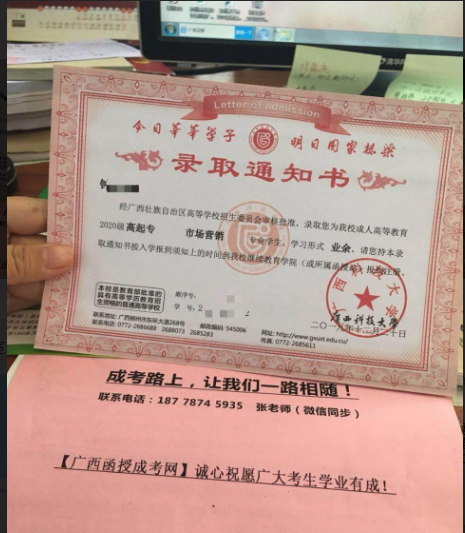 Letter of admission
今日莘莘学子 明日国家栋梁
录取通知书
经广西壮族自治区高等学校招生委员会审核批准，录取您为我校成人高等教育
2020级 高起专 市场营销 专业学生，学习形式 业余，请您持本录
取通知书按入学报到须知上的时间到我校继续教育学院（或所属函授站）报到注册。
本校是教育部批准的
具有高等学历教育招
生资格的普通高等学校
顺序号：
学号：2
广西科技大学
二〇一九年十二月二十日
联系地址：广西柳州市东环大道268号 邮政编码：545006 网址：http://www.gxust.edu.cn/
联系电话：0772-2686688 2688073 2685283 传真：0772-2685611
成考路上，让我们一路相随！
联系电话：187 7874 5935 张老师（微信同步）
【广西函授成考网】诚心祝愿广大考生学业有成！